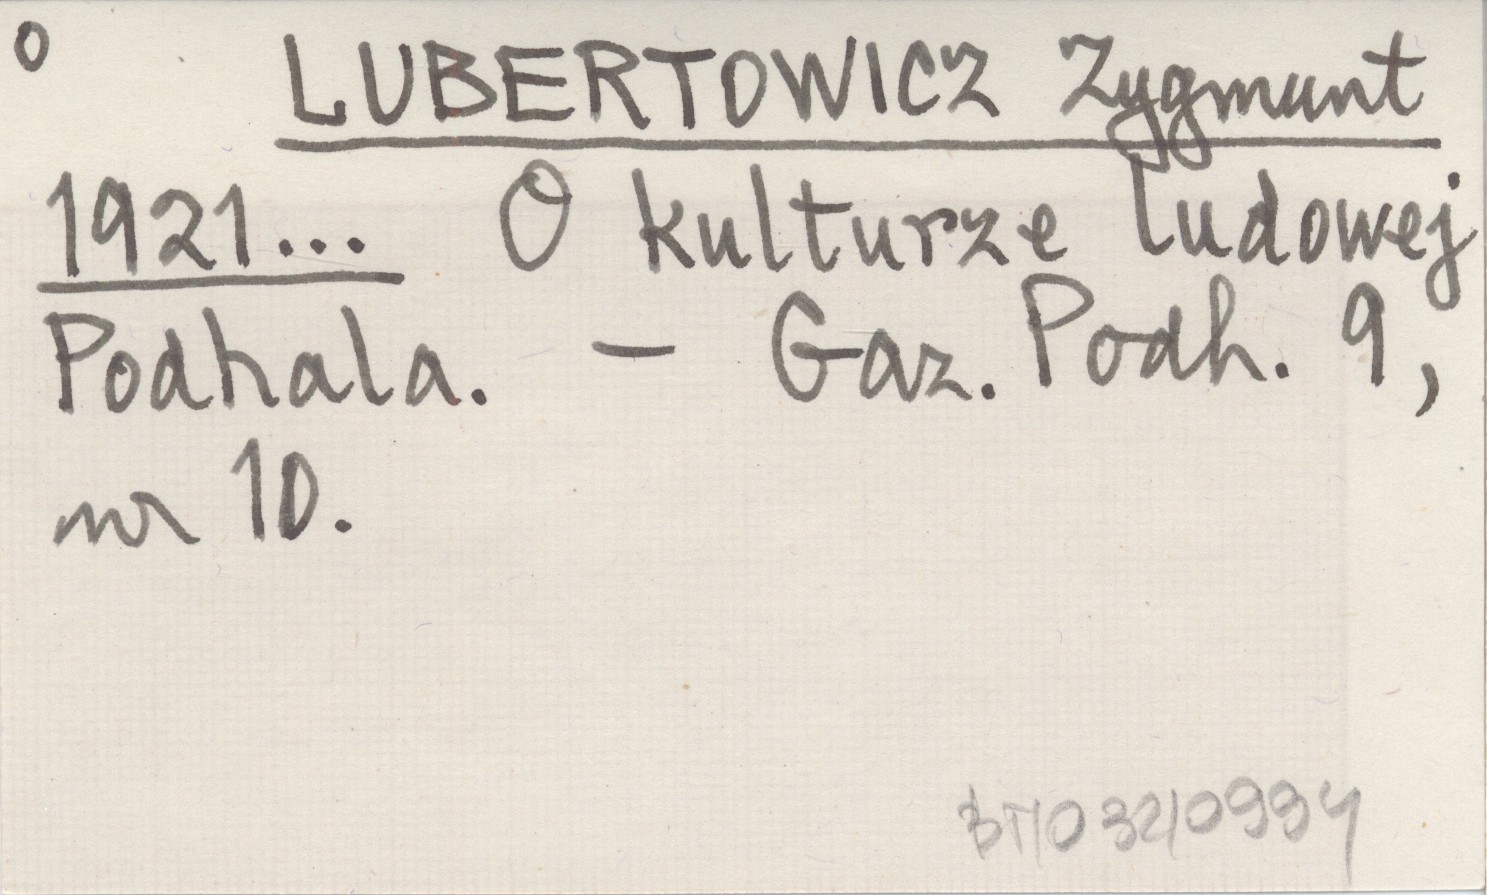 o LUBERTOWICZ Zygmunt
1921... O kulturze ludowej
Podhala. — Gaz. Podh. 9,
nr 10.
BT/032/0994